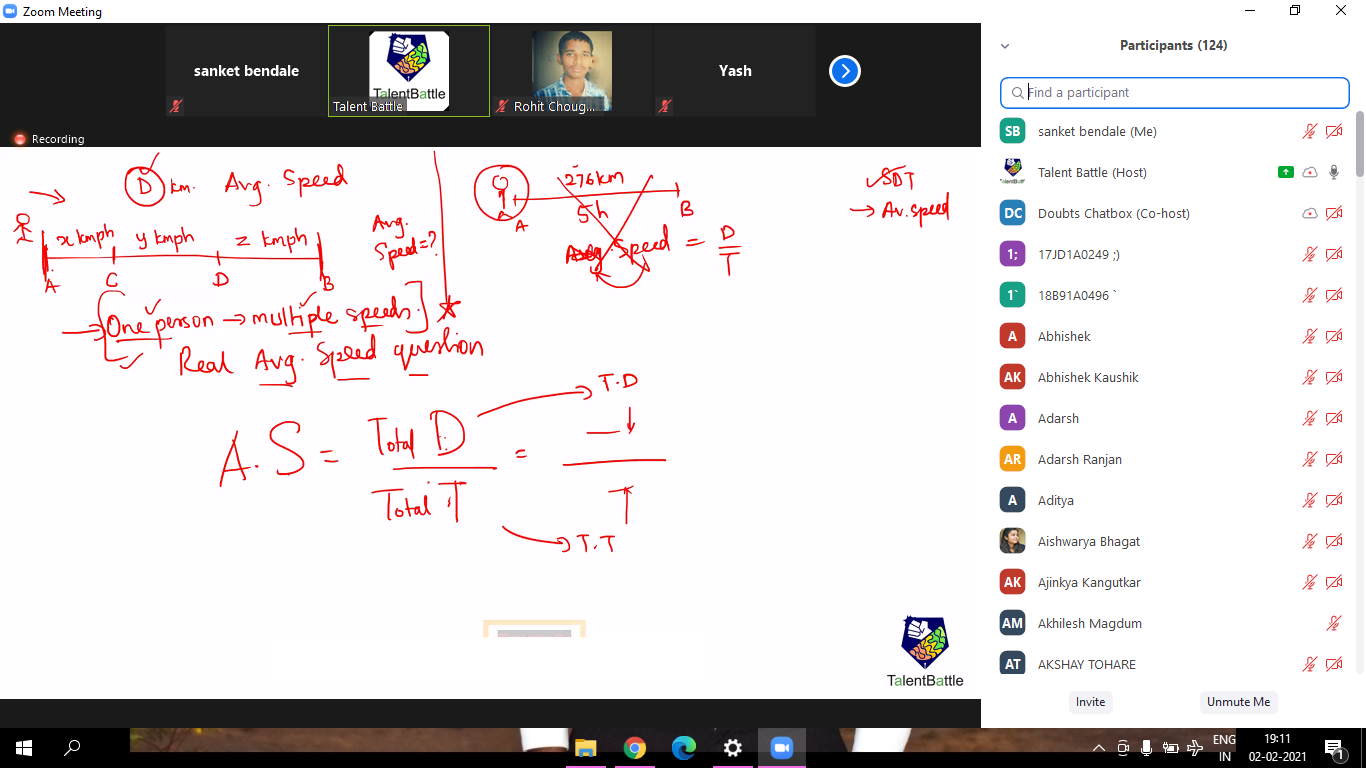 Zoom Meeting
sanket bendale
TalentBattle
Talent Battle
Rohit Choug...
Yash
Recording
D km. Avg. Speed
x kmph y kmph z kmph
Avg. Speed=?
A C D B
One person → multiple speeds.
Real Avg. Speed question
276 km
A B
5 h
Avg. Speed = D/T
SDT
→ Av. speed
A.S = Total D / Total T =
T.D
T
T.T
TalentBattle
Participants (124)
Find a participant
SB sanket bendale (Me)
Talent Battle (Host)
DC Doubts Chatbox (Co-host)
1; 17JD1A0249 ;)
1` 18B91A0496 `
A Abhishek
AK Abhishek Kaushik
A Adarsh
AR Adarsh Ranjan
A Aditya
Aishwarya Bhagat
AK Ajinkya Kangutkar
AM Akhilesh Magdum
AT AKSHAY TOHARE
Invite
Unmute Me
ENG
IN
19:11
02-02-2021
1